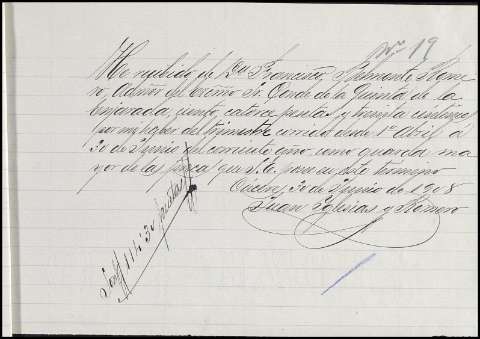 Nº 19
He recibido de Dn Francisco Belmonte Rome-
ro, Admor del Excmo Sr. Conde de la Quinta de la
Enjarada, ciento catorce pesetas y treinta centimos
por mi haber del trimestre corrido desde 1º Abril á
30 de Junio del corriente año, como guarda ma-
yor de las fincas que S. E. posee en este termino
30 de Junio de 1908
Juan Iglesias y Romero
Son 114'30 pesetas